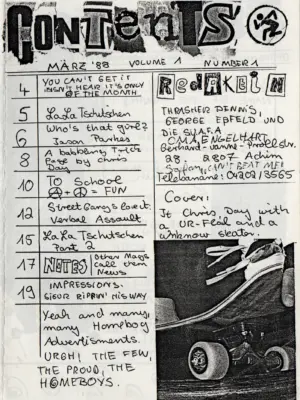 CONTENTS
MÄRZ '88 VOLUME 1 NUMBER 1
4 YOU CAN'T GET IT
HEAR IT'S ONLY
OF THE MONTH
5 LaLa Tschutschen
6 Who's that girl?
Jason Parkes
8 A babbling
Page by Chris
Day
10 TO School
+ = FUN
12 Street Gary's Love it.
Verbal Assault
15 LaLa Tschutschen
Part 2
17 NOTES Other Mags
call them
News
19 IMPRESSIONS.
GIEUR RIPPIN' HIS WAY
Yeah and many,
many Homeboy
Advertisments.
URGH! THE FEW,
THE PROUD, THE
HOMEBOYS.
REDAKEI N
THRASHER DENNIS,
GEORGE EPFELD UND
DIE
OMA ENGELHART
Gerhard-
28, 2807 Achim
CAN'T BEAT ME!
04202/8565
Cover:
It Chris Day with
a UR-Feal and a
unknow skater.